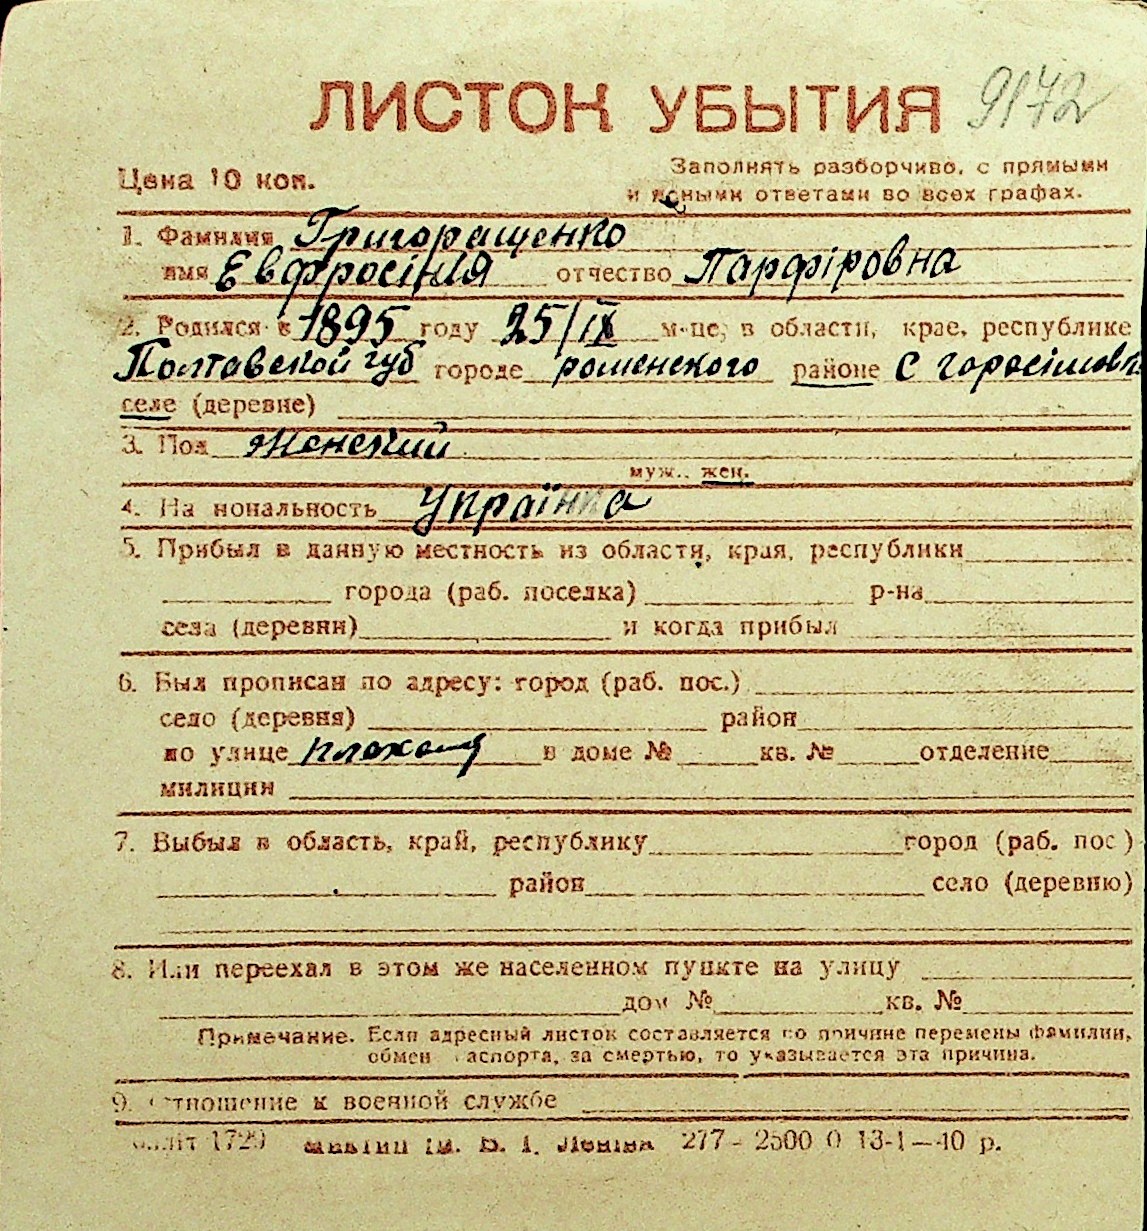 ЛИСТОК УБЫТИЯ 9172
Цена 10 коп.
Заполнять разборчиво, с прямыми
и ясными ответами во всех графах.
1. Фамилия Григоращенко
имя Евфросінія отчество Парфіровна
2. Родился в 1895 году 25/IX м-це, в области, крае, республике
Полтавской губ городе роменского районе С
селе (деревне)
3. Пол Женский
муж., жен.
4. Национальность Українка
5. Прибыл в данную местность из области, края, республики
города (раб. поселка) р-на
села (деревни) и когда прибыл
6. Был прописан по адресу: город (раб. пос.)
село (деревня) район
по улице в доме № кв. № отделение
милиции
7. Выбыл в область, край, республику город (раб. пос)
район село (деревню)
8. Или переехал в этом же населенном пункте на улицу
дом № кв. №
Примечание. Если адресный листок составляется по причине перемены фамилии,
обмен паспорта, за смертью, то указывается эта причина.
9. Отношение к военной службе
1729 ім. В. І. Леніна 277 - 2500 0 13-1—40 р.